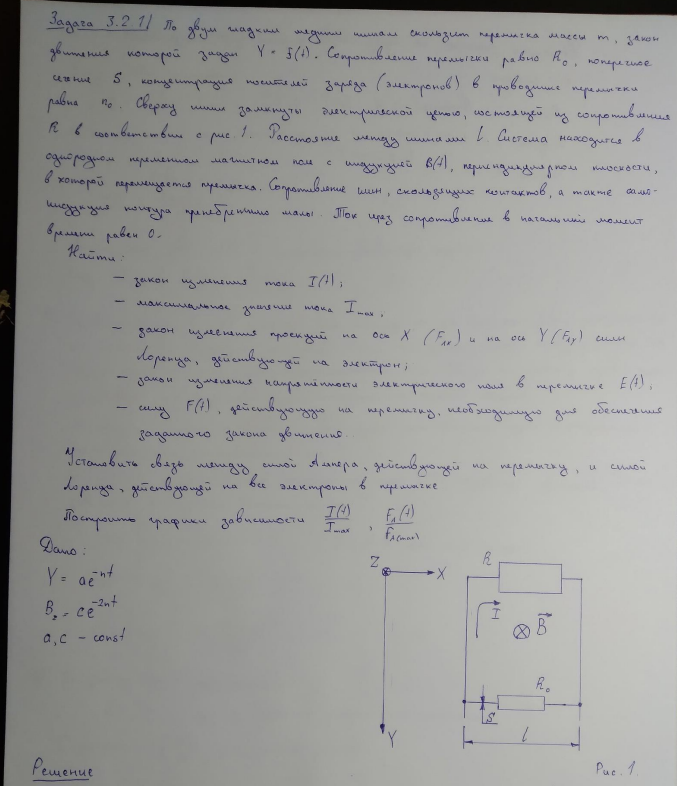 Задача 3.2.1/ По двум гладким медным шинам скользит перемычка массы m, закон
движения которой задан Y = f(t). Сопротивление перемычки равно R₀, поперечное
сечение S, концентрация носителей заряда (электронов) в проводнике перемычки
равна n₀. Сверху шины замкнуты электрической цепью, состоящей из сопротивления
R в соответствии с рис. 1. Расстояние между шинами l. Система находится в
однородном переменном магнитном поле с индукцией B(t), перпендикулярном плоскости,
в которой перемещается перемычка. Сопротивление шин, скользящих контактов, а также само-
индукция контура пренебрежимо малы. Ток через сопротивление в начальный момент
времени равен 0.
Найти:
– закон изменения тока I(t);
– максимальное значение тока I max,
– закон изменения проекций на ось X (Fлx) и на ось Y (Fлy) силы
Лоренца, действующей на электрон;
– закон изменения напряжённости электрического поля в перемычке E(t),
– силу F(t), действующую на перемычку, необходимую для обеспечения
заданного закона движения.
Установить связь между силой Ампера, действующей на перемычку, и силой
Лоренца, действующей на все электроны в перемычке
Построить графики зависимости I(t)/I max , FA(t)/FA(max)
Дано:
Y = ae^-nt
Bz = ce^-2nt
a, c – const
Z X R
I B
R₀
S
Y l
Решение Рис. 1.